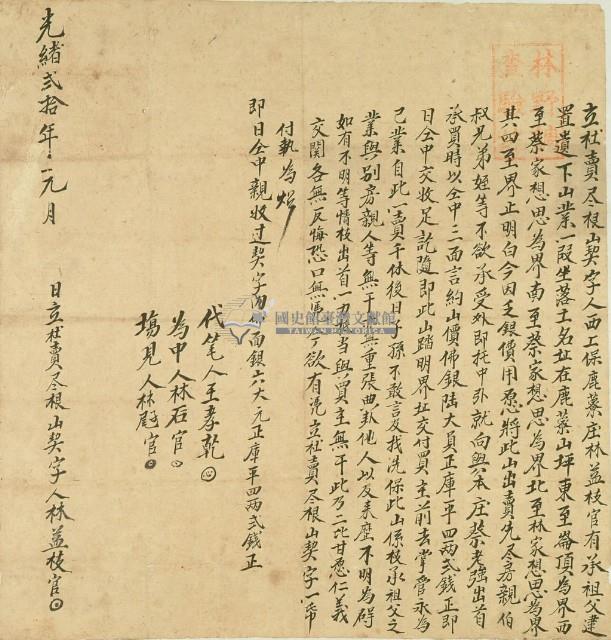 立杜賣尽根山契字人西工保鹿蔴庄林益枝官有承祖父建
置遺下山業一段坐落土名址在鹿蔴山坪東至崙頂為界西
至蔡家想思為界南至蔡家想思為界北至林家想思為界
其四至界止明白今因乏銀費用愿將此山出賣先尽房親伯
叔兄弟姪等不欲承受外即托中引就向與本庄蔡老強出首
承買時以仝中三面言約山價佛銀陸大員正庫平四兩弍錢正即
日仝中交收足訖隨即此山踏明界址交付買主前去掌管永為
己業自此一賣千休後日子孫不敢言及找洗保此山係枝承祖父之
業與別房親人等無干亦無重張典卦他人以及來歷不明為碍
如有不明等情枝出首一力抵当與買主無干此乃二比甘愿仁義
交関各無反悔恐口無憑今欲有凴立杜賣尽根山契字一帋
付執為炤
即日仝中親收过契字內佛面銀六大元正庫平四兩弍錢正
代笔人王孝乾
為中人林石官
塲見人林官
光緒弍拾年二元月 日立杜賣尽根山契字人林益枝官
林野
國史館臺灣文獻館
TAIWAN HISTORICA